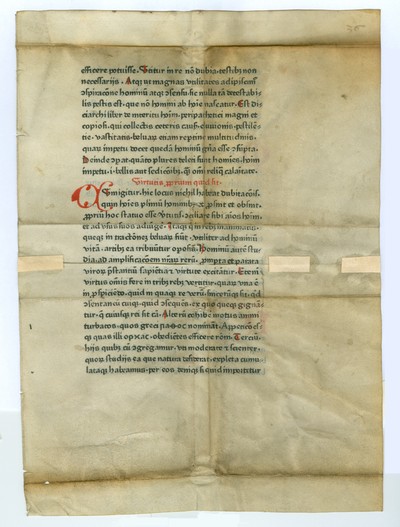 efficere potuisse. Utitur in re nō dubia testibꝫ non
necessariis. Atqꝫ ut magnas utilitates adipiscimꝰ
ɔspiratione hominū atqꝫ ɔsensu. sic nulla tā detestabi
lis pestis est. que nō homī ab hoīe nascatur. Est di
cearchi liber de interitu hoīm. peripathetici magni et
copiosi. qui collectis ceteris causis. eluuionis. pestilē
tie. vastitatis. beluaꝝ etiam repētine multitudinis.
quaꝝ impetu docet quedā hominū gña esse ɔsūpta.
Deinde ɔparat. quāto plures deleti sunt homīes. hoīm
impetu. i. bellis aut sedicōibꝫ. qꝫ om̄i reliqͣ calaītate.
Virtutis ꝓprium quid sit.
Cum igitur hic locus nichil habeat dubitacōis.
quin hoīes plīmū hominibꝫ et ꝓsint et obsint.
ꝓpriū hoc statuo esse virtutis. ɔciliare sibi aīos hoīm.
et ad usus suos adiūgere. Itaqꝫ que in rebꝫ inanimatis.
queqꝫ in tractōne beluaꝝ fiūt. vtiliter ad hominū
vitā. artibꝫ ea tribuūtur opiosis. Hominū autē stu
dia. ad amplificacōem nr̄aꝝ rerū. prōpta et parata
viroꝝ p̄stantiū sapiētia et virtute excitātur. Etem̄
virtus om̄is fere in tribꝫ rebꝫ vertitur. quaꝝ vna ē
in ꝓspiciēto. quid in quaqꝫ re verū. sincerūqꝫ sit. qͥd
ɔsentaneū cuiqꝫ. quid ɔsequēs. ex quo queqꝫ gignan
tur. que cuiusqꝫ rei sit cā. Alterū cohibere motus animi
turbatos. quos greci nominant. Appeticōes
qꝫ quas illi opmac. obediētes efficere rōni. Terciū
hijs quibꝫ cū ɔgregamur. vti moderate et scienter.
quoꝝ studijs ea que natura desiderat. expleta cumu
lataqꝫ habeamus. per eos demqꝫ si quid importetur